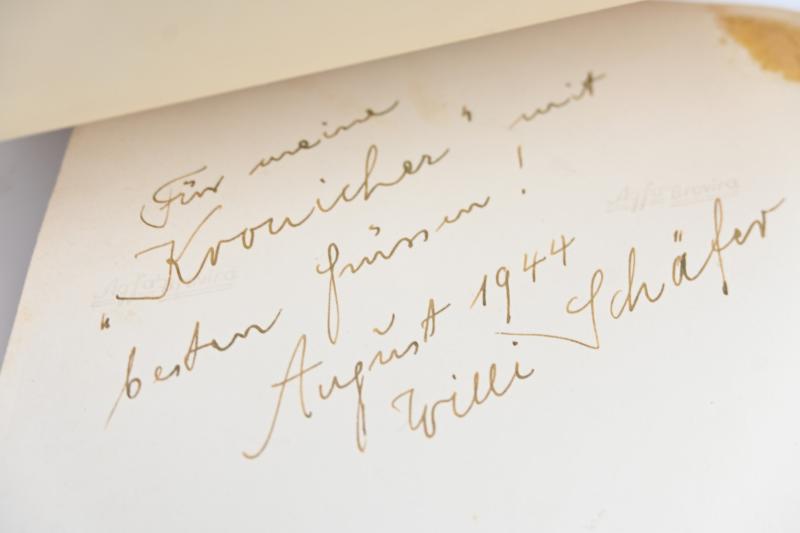 Für meine
"Kronicher" mit
besten Grüssen!
August 1944
Willi Schäfer
Agfa Brovira
Agfa Brovira